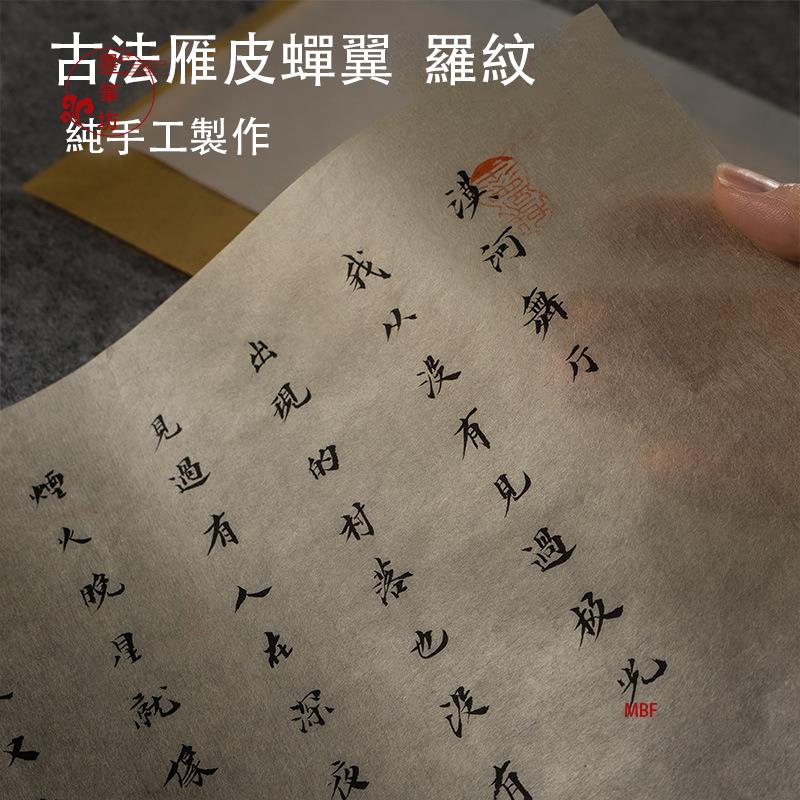 古法雁皮蟬翼 羅紋
純手工製作
漠河舞厅
我从没有見過极光
出現的村落也没有
見過有人在深夜
煙火晚星就像
又
MBF